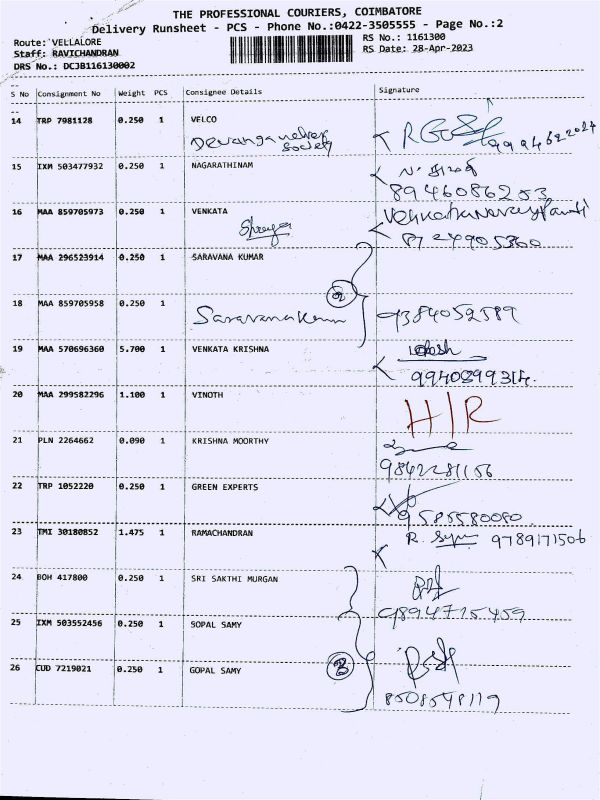 THE PROFESSIONAL COURIERS, COIMBATORE
Delivery Runsheet - PCS - Phone No.:0422-3505555 - Page No.:2
Route: VELLALORE
RS No.: 1161300
Staff: RAVICHANDRAN
RS Date: 28-Apr-2023
DRS No.: DCJB116130002
S No Consignment No Weight PCS Consignee Details Signature
14 TRP 7981128 0.250 1 VELCO
Society
15 IXM 503477932 0.250 1 NAGARATHINAM
8946086253
16 MAA 859705973 0.250 1 VENKATA
17 MAA 296523914 0.250 1 SARAVANA KUMAR
2
18 MAA 859705958 0.250 1
Saravanakum 9384052589
19 MAA 570696360 5.700 1 VENKATA KRISHNA
20 MAA 299582296 1.100 1 VINOTH
H/R
21 PLN 2264662 0.090 1 KRISHNA MOORTHY
9842281156
22 TRP 1052220 0.250 1 GREEN EXPERTS
9585580080
23 TMI 30180852 1.475 1 RAMACHANDRAN
R. 9789171506
24 BOH 417800 0.250 1 SRI SAKTHI MURGAN
9894715459
25 IXM 503552456 0.250 1 SOPAL SAMY
26 CUD 7219021 0.250 1 GOPAL SAMY
3
8508548119